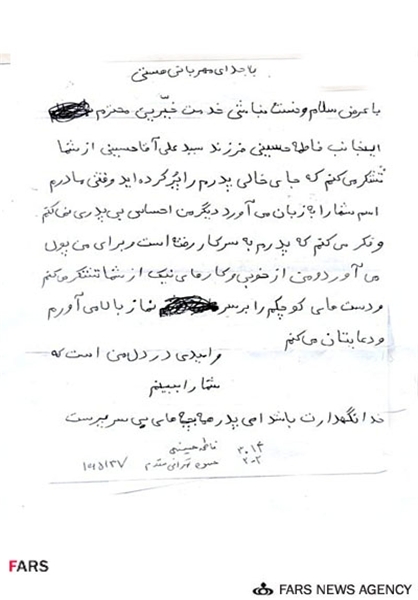 با خدای مهربانی هستی
با عرض سلام و خدمت خیّرین محترم
اینجانب فاطمه حسینی فرزند سید علی آقا حسینی از شما
تشکر می کنم که جای خالی پدرم را پُر کرده اید وقتی مادرم
اسم شما را به زبان می آورد دیگر من احساس بی پدری نمی کنم
و فکر می کنم که پدرم به سر کار رفته است و برای من پول
می آورد و من از خوبی و کارهای نیک از شما تشکر می کنم
و دست های کوچکم را بر سر نماز بالا می آورم
و دعایتان می کنم
و امیدی در دل من است که
شما را ببینم
خدا نگهدارت باشد ای پدر بچه های بی سرپرست
۳۰۱۴ فاطمه حسینی
FARS
FARS NEWS AGENCY